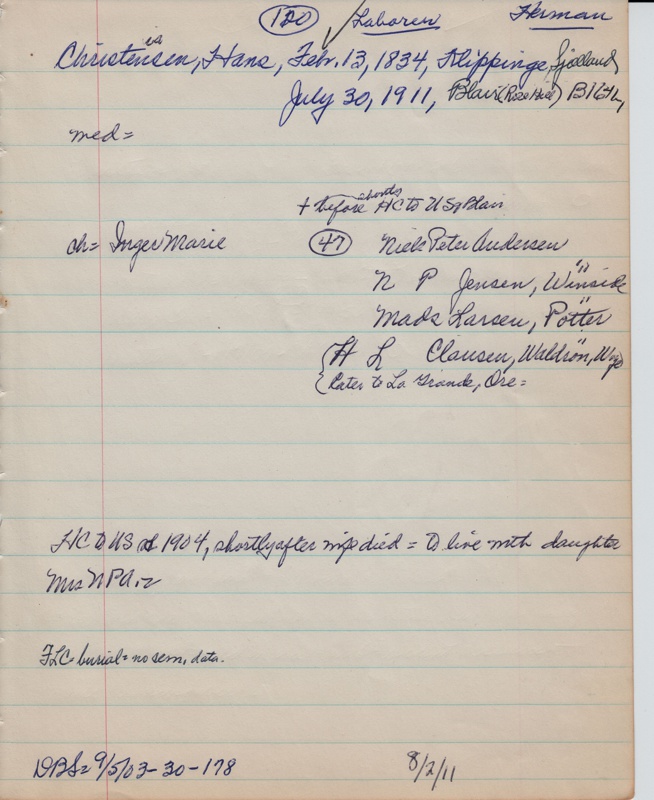 (120) Laborer Herman
Christensen, Hans, Feb. 13, 1834, Klippinge, Sjolland
July 30, 1911, Blair (Rose Hill) B164L,
med=
+ before HC to US, Blair
shortly
ch= Inger Marie (47) Niels Peter Andersen
N P Jensen, Winside
"
Mads Larsen, Potter
"
{H L Clausen, Waldron, Wyo
{Later to La Grande, Ore=
HC to US 1904, shortly after wife died = to live with daughter
Mrs NPA.=
FLC= burial= no sem. data.
DBS= 9/5/03-30-178 8/2/11